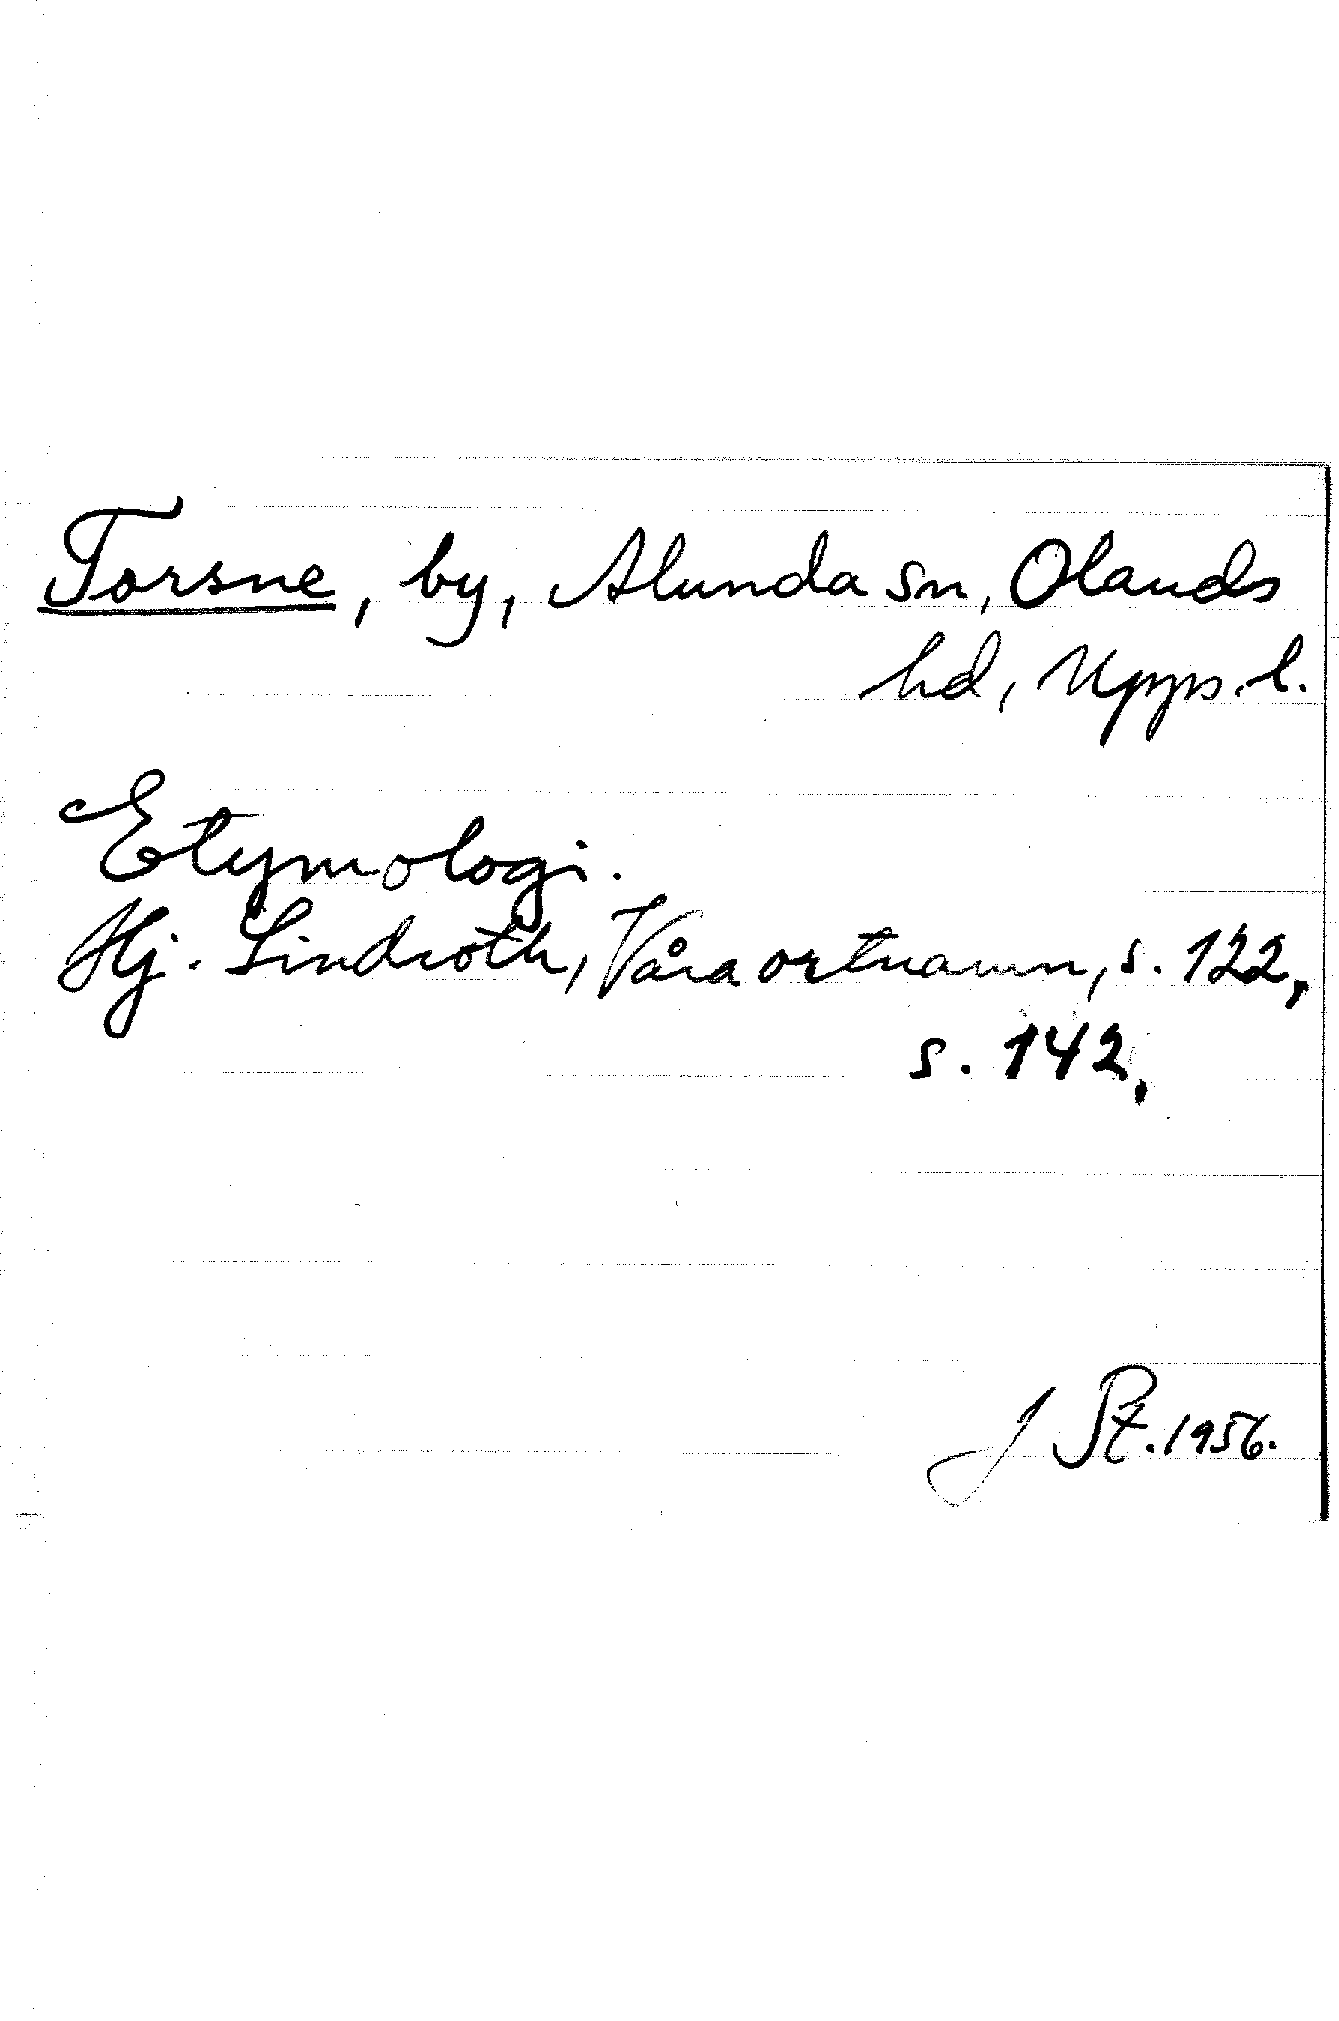 Torsne, by, Alunda sn, Olands
hd, Upps. l.
Etymologi.
Hj. Lindroth, Våra ortnamn, s. 122,
s. 142.
J St. 1956.